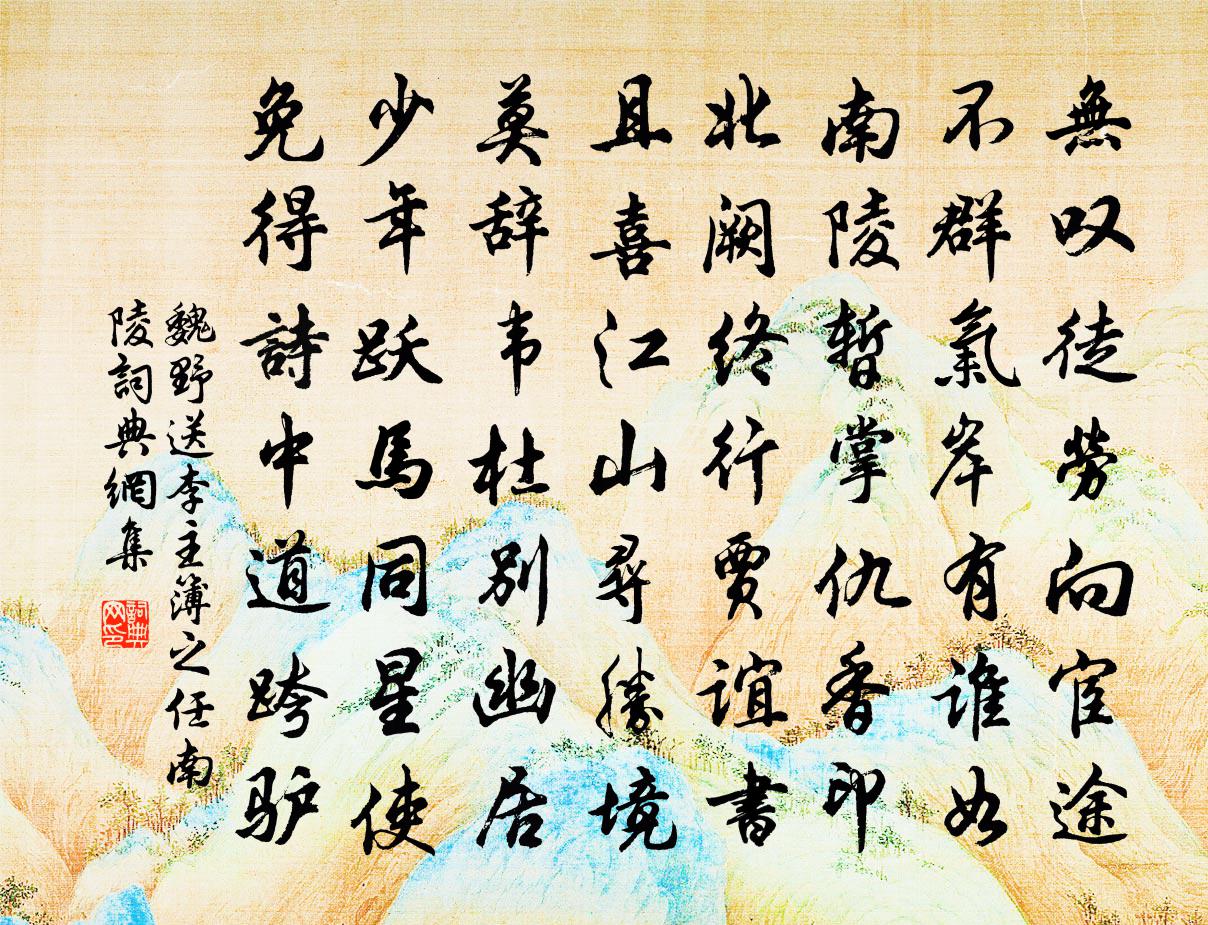 無叹徒勞向宦途
不群氣岸有誰如
南陵暫掌仇香印
北阙终行賈谊書
且喜江山尋勝境
莫辞韦杜别幽居
少年跃馬同星使
免得詩中道跨驴
魏野送李主簿之任南
陵詞典網集
詞典
网印